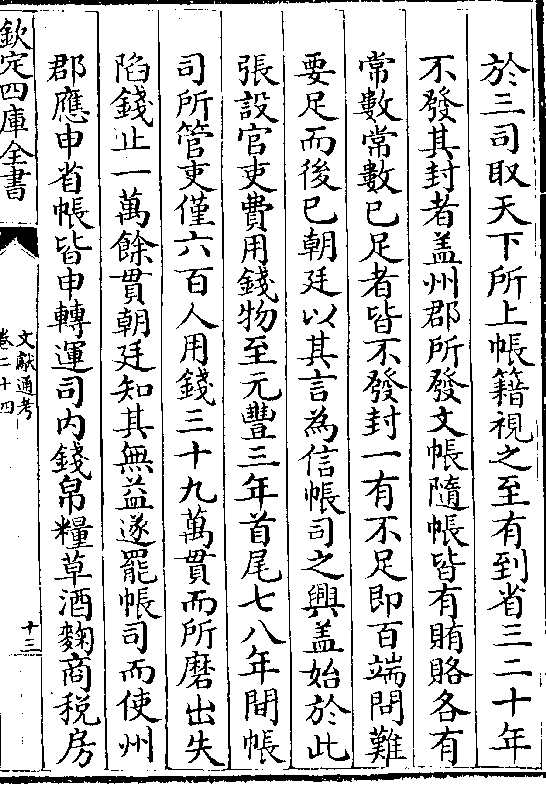 於三司取天下所上帳籍視之至有到省三二十年
不發其封者盖州郡所發文帳隨帳皆有賄賂各有
常數常數已足者皆不發封一有不足即百端問難
要足而後已朝廷以其言為信帳司之興盖始於此
張設官吏費用錢物至元豐三年首尾七八年間帳
司所管吏僅六百人用錢三十九萬貫而所磨出失
陷錢止一萬餘貫朝廷知其無益遂罷帳司而使州
郡應申省帳皆申轉運司内錢帛糧草酒麴商税房
欽定四庫全書
文獻通考
卷二十四
十三